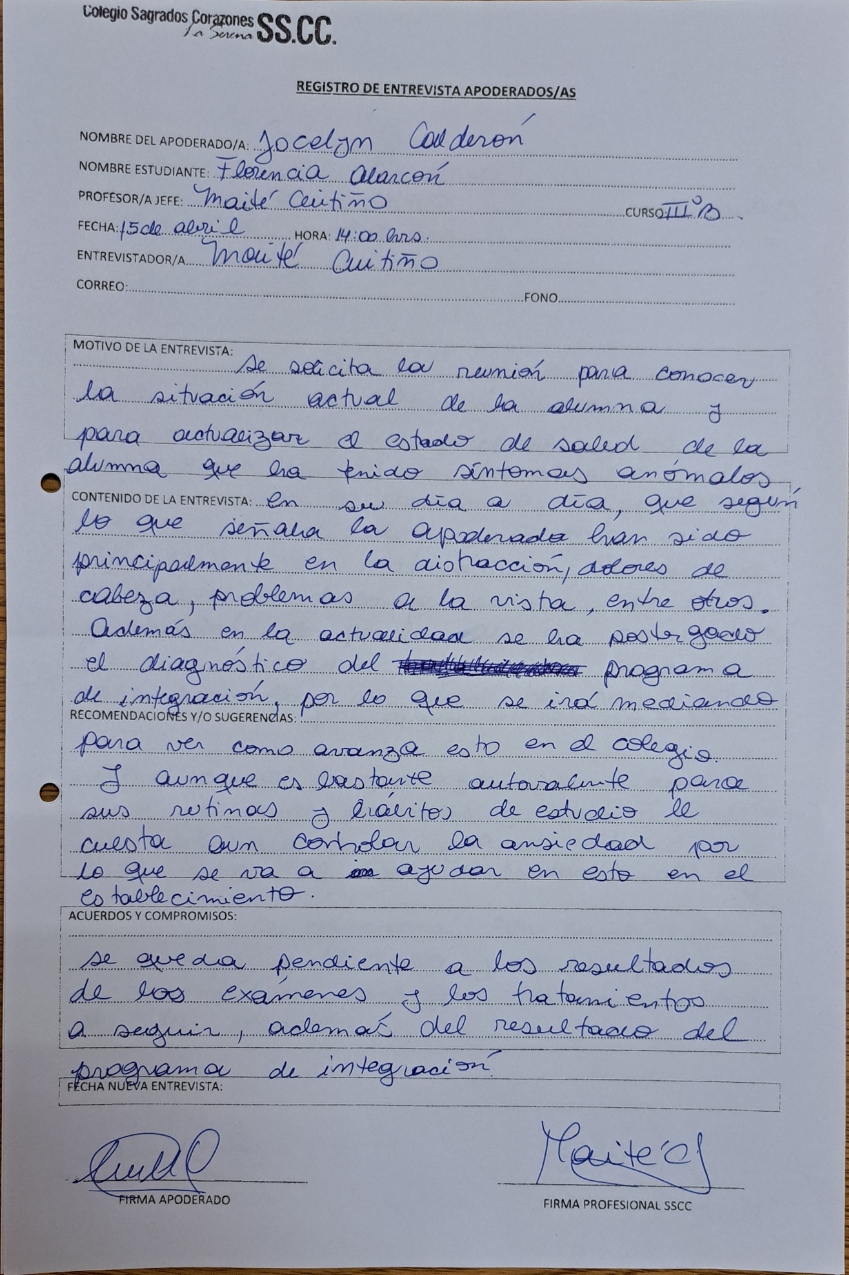 Colegio Sagrados Corazones SS.CC.
La Serena
REGISTRO DE ENTREVISTA APODERADOS/AS
NOMBRE DEL APODERADO/A: Jocelyn Calderón
NOMBRE ESTUDIANTE: Florencia Alarcón
PROFESOR/A JEFE: Maité Cuitiño CURSO III°B
FECHA: 15 de abril HORA: 14:00 hrs.
ENTREVISTADOR/A Maité Cuitiño
CORREO: FONO
MOTIVO DE LA ENTREVISTA:
se solicita la reunión para conocer
la situación actual de la alumna y
para actualizar el estado de salud de la
alumna que ha tenido síntomas anómalos
CONTENIDO DE LA ENTREVISTA: en su día a día, que según
lo que señala la apoderada han sido
principalmente en la distracción, dolores de
cabeza, problemas a la vista, entre otros.
Además en la actualidad se ha postergado
el diagnóstico del programa
de integración, por lo que se irá mediando
RECOMENDACIONES Y/O SUGERENCIAS:
para ver como avanza esto en el colegio.
Y aunque es bastante autovalente para
sus rutinas y hábitos de estudio le
cuesta aun controlar la ansiedad por
lo que se va a ayudar en esto en el
establecimiento.
ACUERDOS Y COMPROMISOS:
se queda pendiente a los resultados
de los exámenes y los tratamientos
a seguir, ademas del resultado del
programa de integración
FECHA NUEVA ENTREVISTA:
Maité C
FIRMA APODERADO
FIRMA PROFESIONAL SSCC